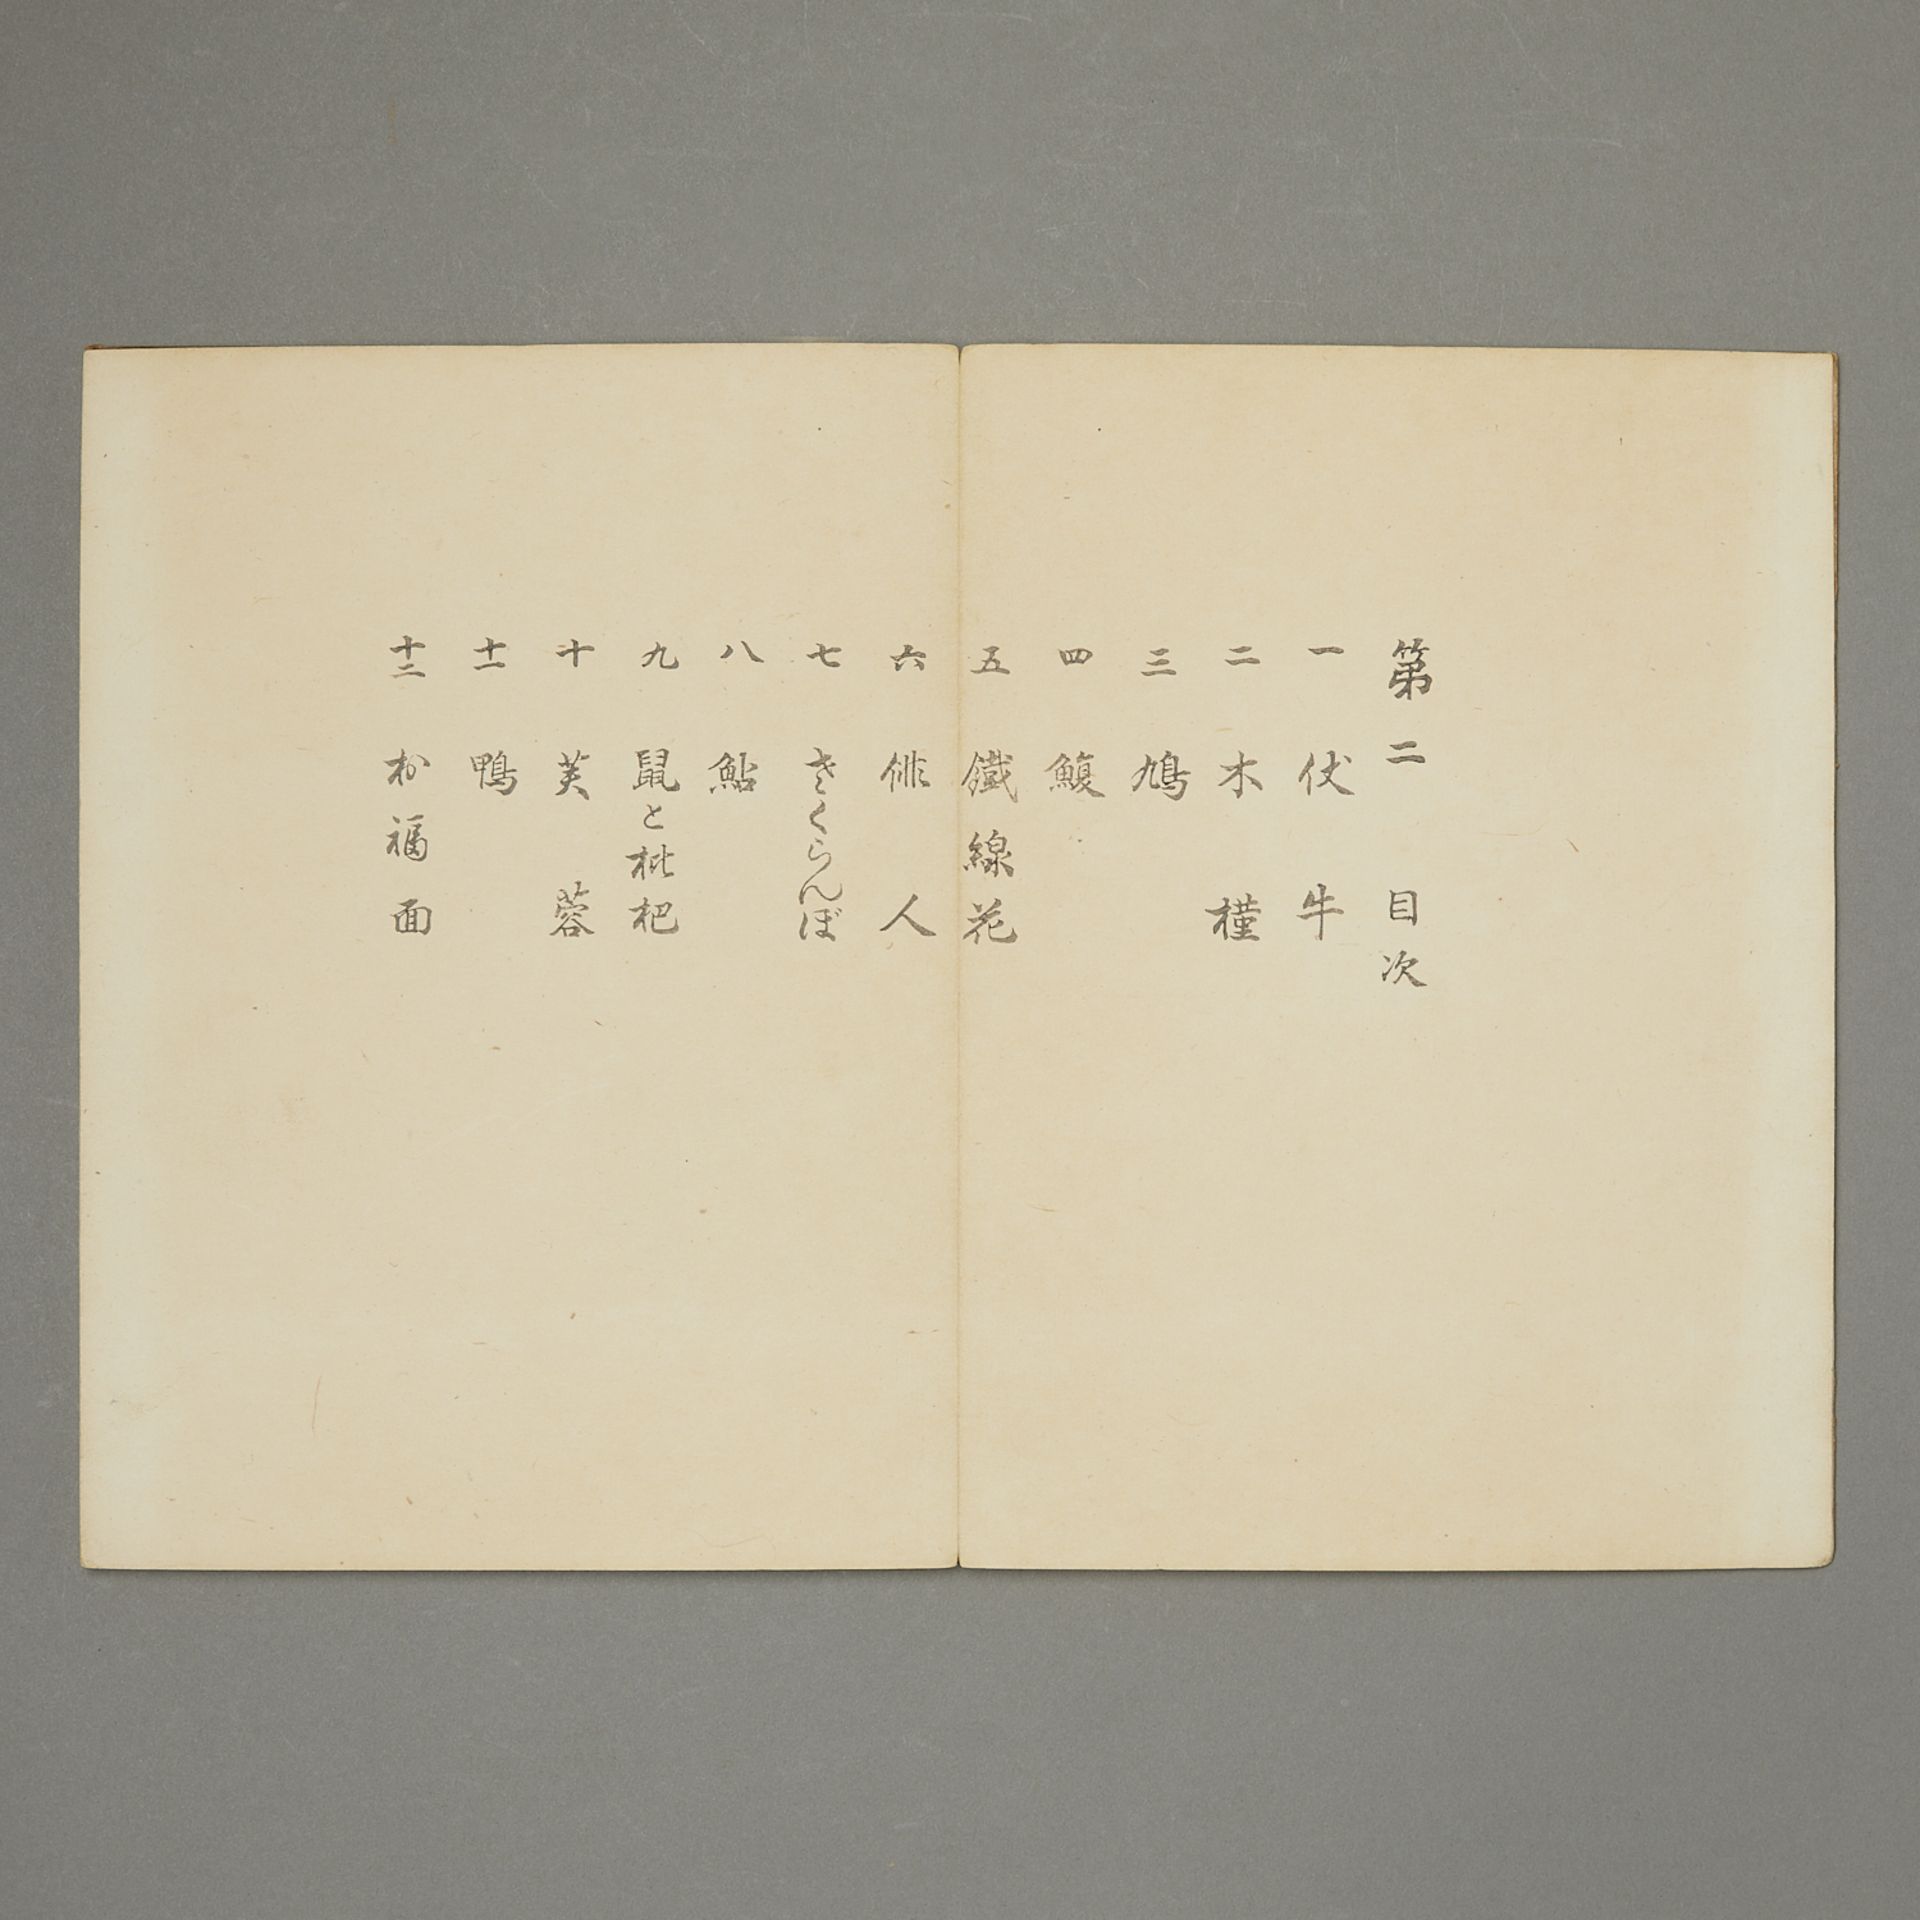 第二 目次
一 伏牛
二 木槿
三 鳩
四 鰒
五 鐵線花
六 俳人
七 さくらんぼ
八 鮎
九 鼠と枇杷
十 芙蓉
十一 鴨
十二 於福面